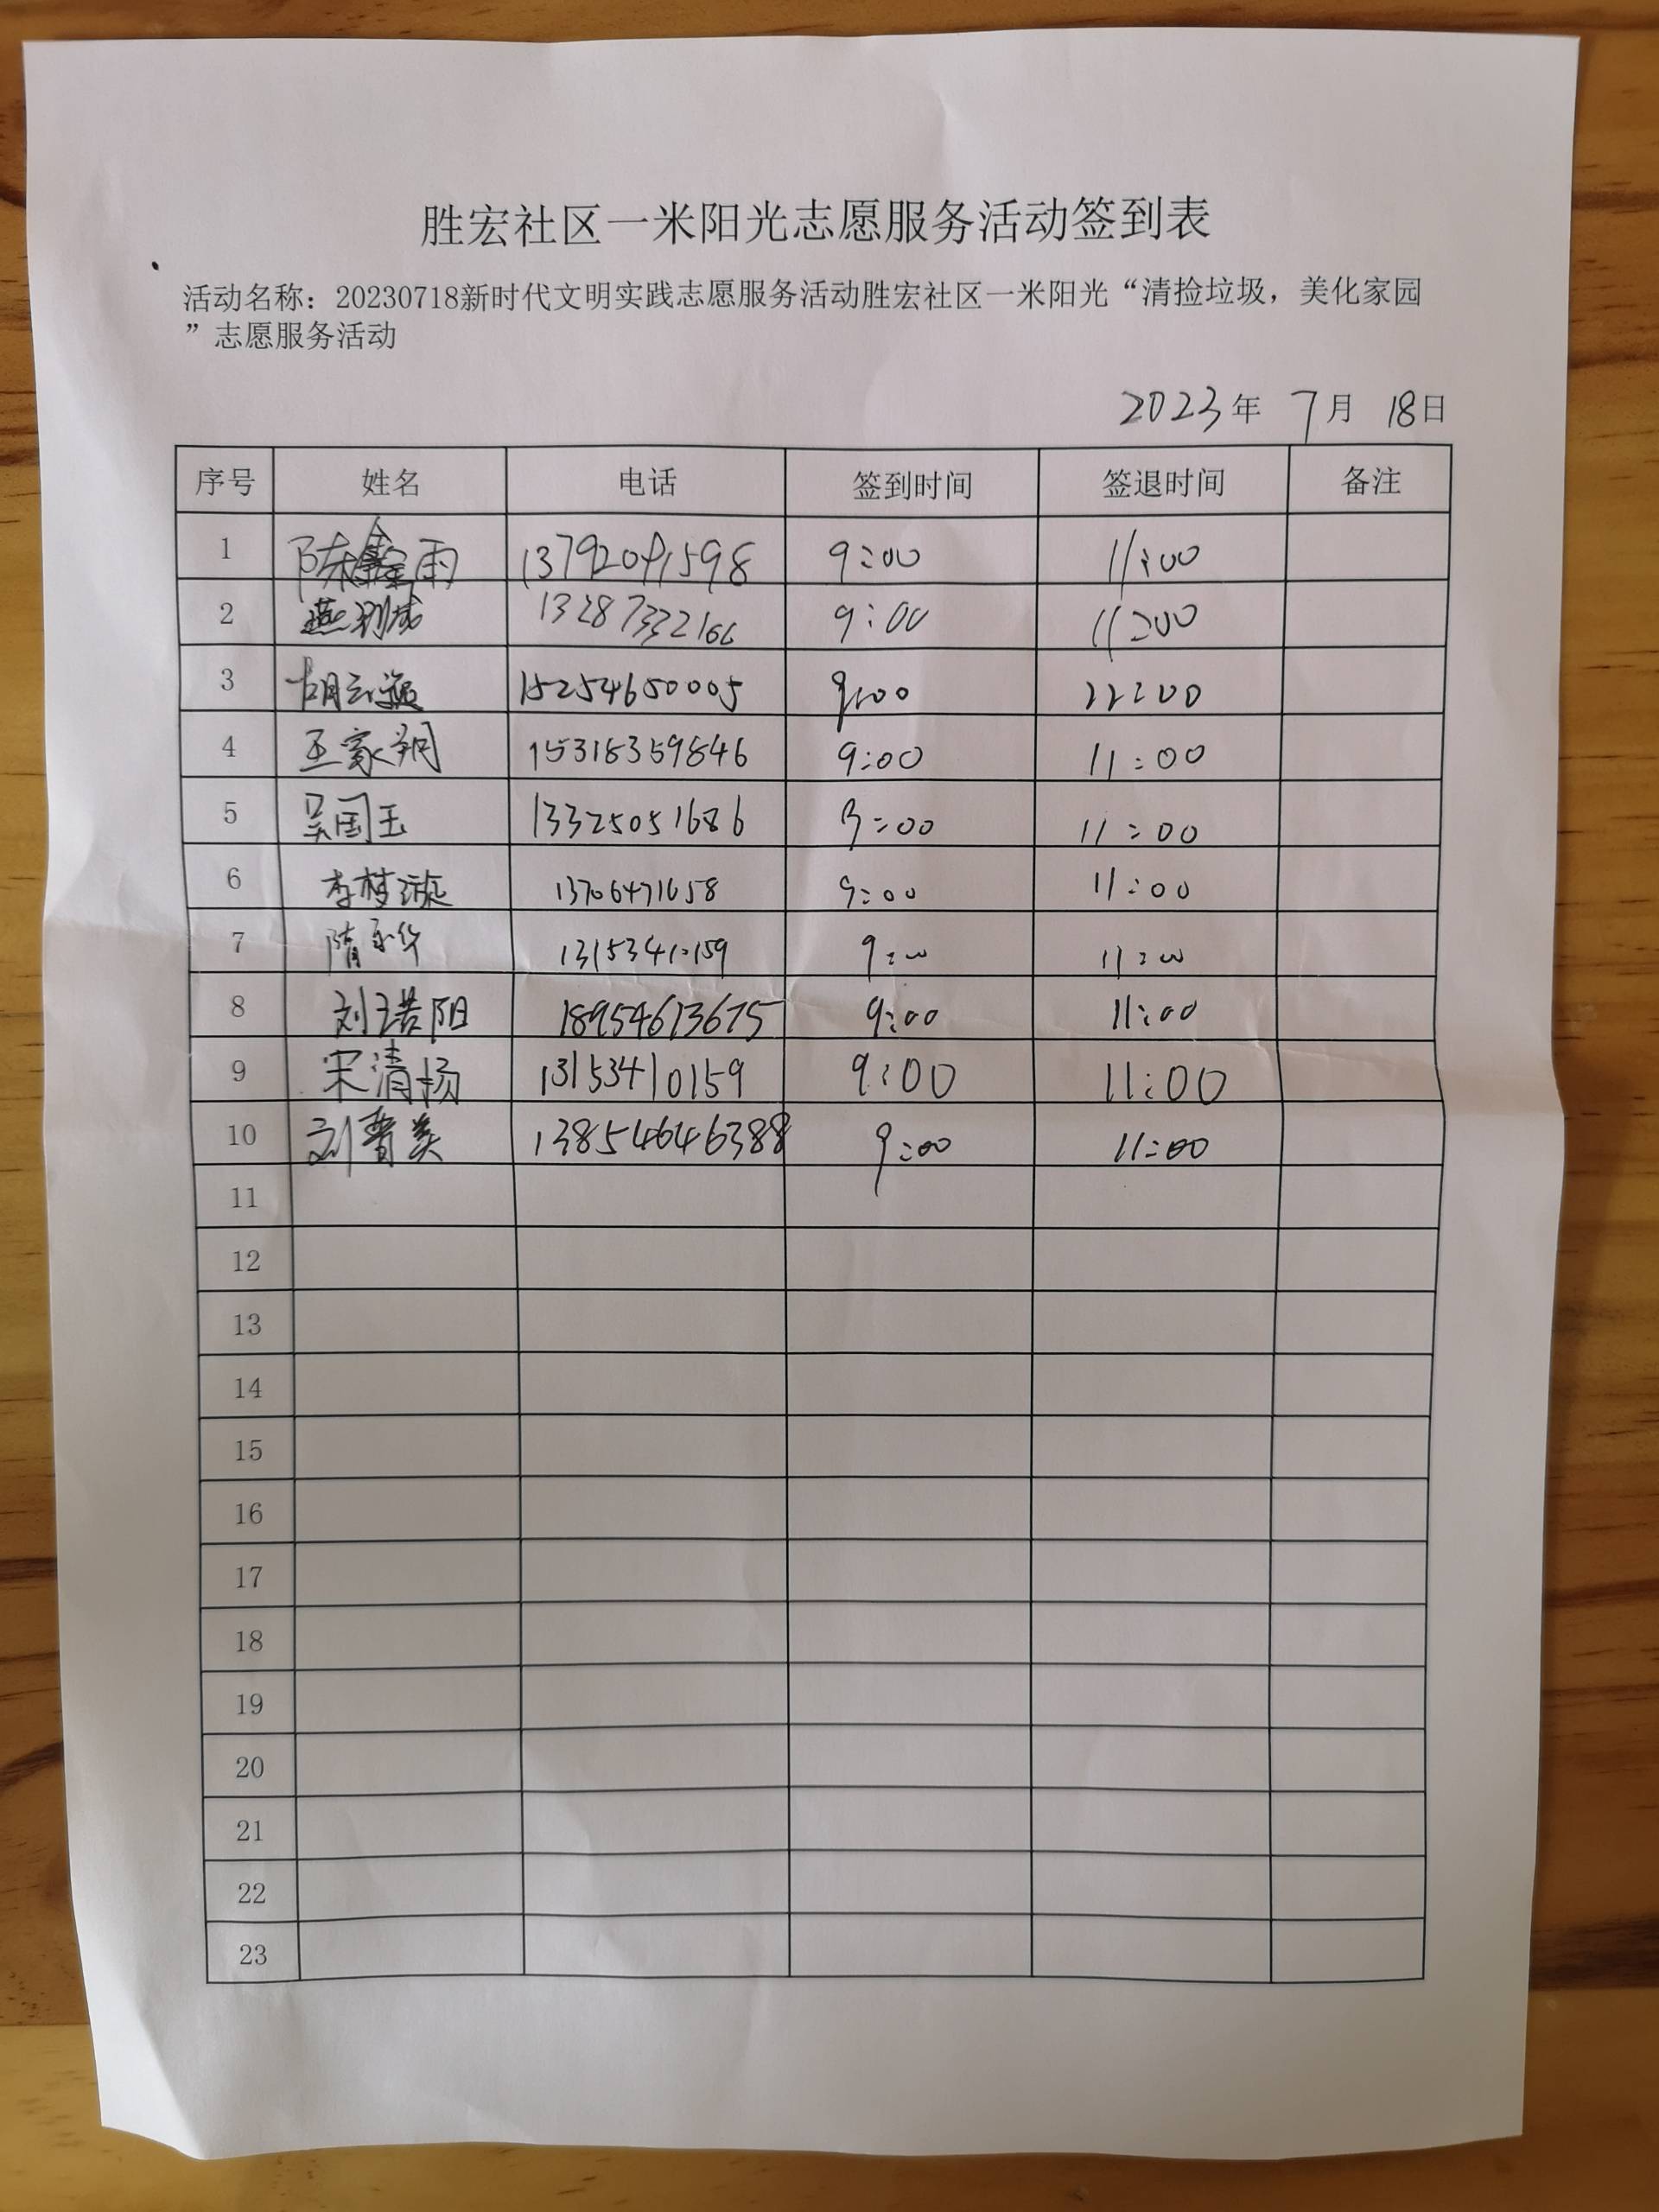 胜宏社区一米阳光志愿服务活动签到表
活动名称：20230718新时代文明实践志愿服务活动胜宏社区一米阳光“清捡垃圾，美化家园
”志愿服务活动
2023年 7月 18日
序号 姓名 电话 签到时间 签退时间 备注
1 陈鑫雨 13792091598 9:00 11:00
2 13287332166 9:00 11:00
3 胡云 15254650005 9:00 11:00
4 王家翔 15318359846 9:00 11:00
5 吴国玉 13325051686 9:00 11:00
6 李梦漩 13706471658 9:00 11:00
7 隋永华 13153410159 9:00 11:00
8 刘诺阳 18954613675 9:00 11:00
9 宋清扬 13153410159 9:00 11:00
10 刘 美 13854646388 9:00 11:00
11
12
13
14
15
16
17
18
19
20
21
22
23